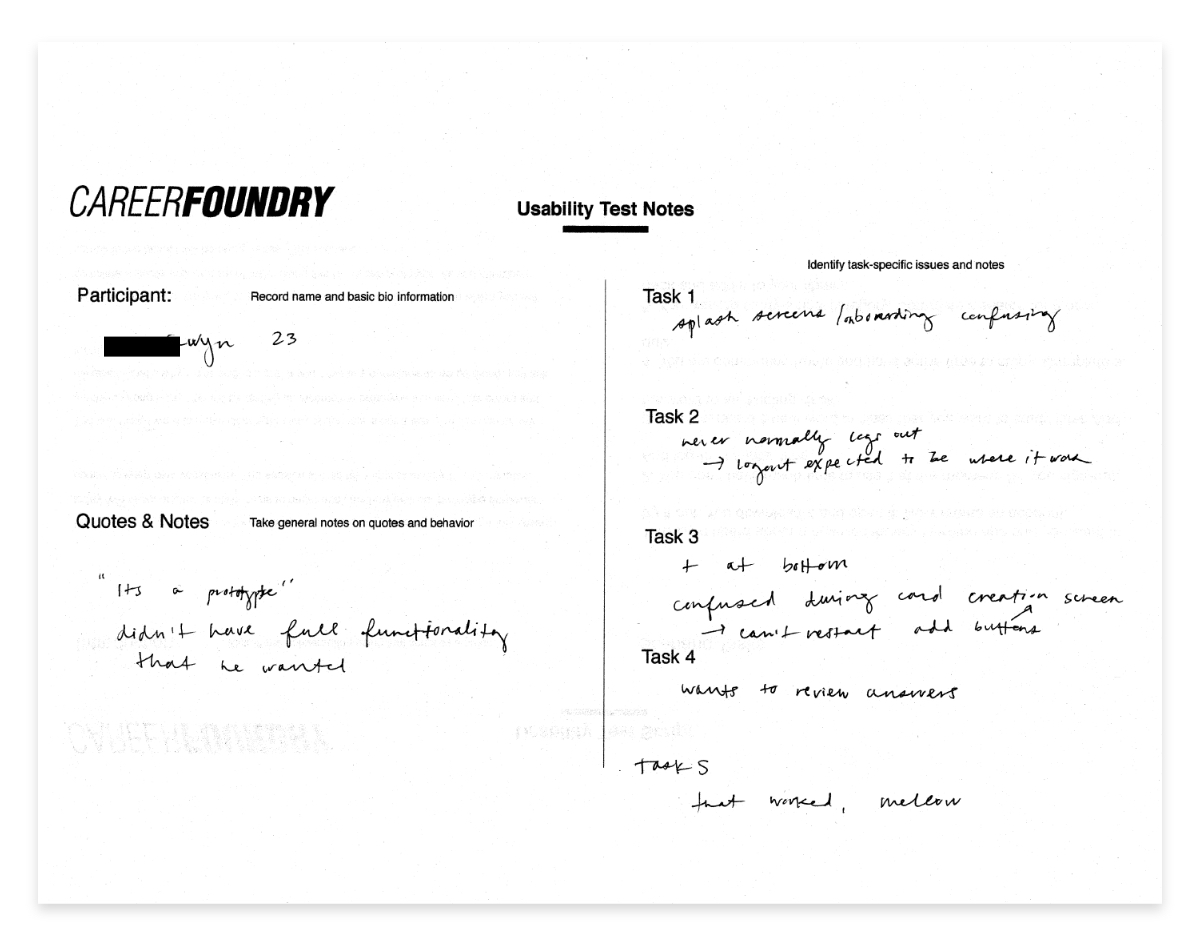 CAREERFOUNDRY
Usability Test Notes
Participant:
Record name and basic bio information
wyn 23
Quotes & Notes
Take general notes on quotes and behavior
"Its a prototype"
didn't have full functionality
that he wanted
Identify task-specific issues and notes
Task 1
splash screens/onboarding confusing
Task 2
never normally logs out
→ logout expected to be where it was
Task 3
+ at bottom
confused during card creation screen
→ can't restart add buttons
Task 4
wants to review answers
Task 5
that worked, mellow